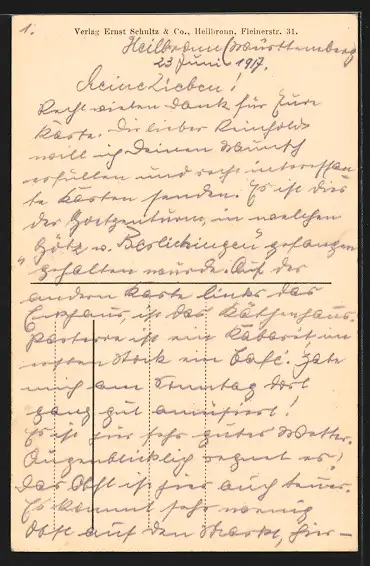 1.
Verlag Ernst Schultz & Co., Heilbronn, Fleinerstr. 31.
Heilbronn/Württemberg
23 Juni 1917.
Meine Lieben!
Recht vielen Dank für Eure
Karte. Dir lieber Reinhold
will ich Deinen Wunsch
erfüllen und recht interessan
te Karten senden. Es ist dies
der Goetzenturm, in welchen
"Götz v. Berlichingen" gefangen
gehalten wurde. Auf der
andern Karte links das
Eckhaus, ist das Käthenhaus.
Parterre ist ein Kabarett im
ersten Stock ein Café. Habe
mich am Sonntag dort
ganz gut amüsiert!
Es ist hier sehr gutes Wetter.
Augenblicklich regnet es!
Das Obst ist hier auch teuer.
Es kommt sehr wenig
Obst auf den Markt, hier-